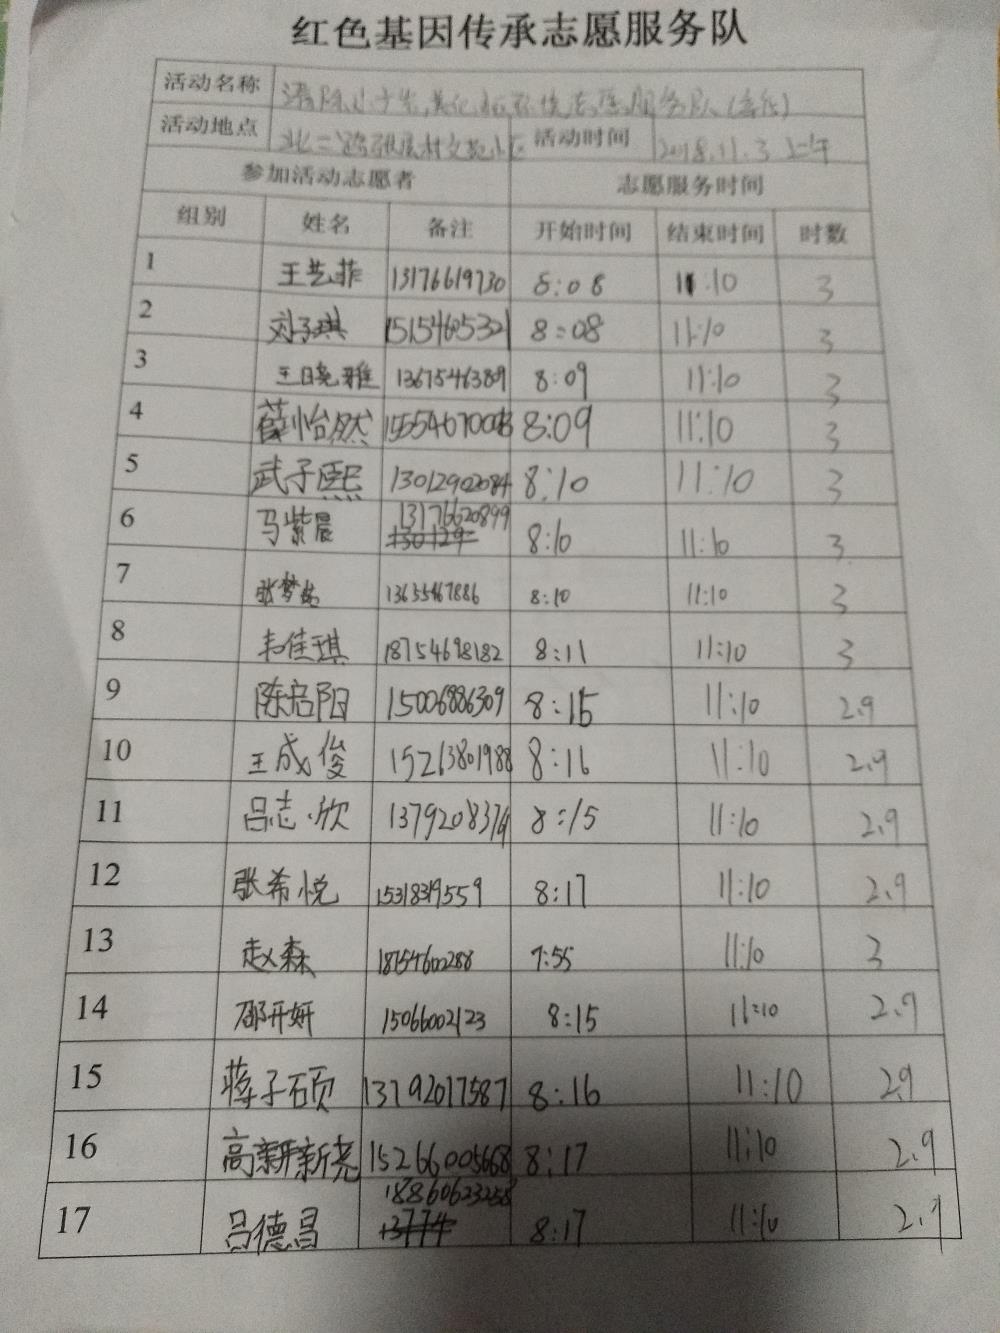 红色基因传承志愿服务队
活动名称 清除小广告,美化 环境志愿服务队
活动地点 北二路 文苑小区 活动时间 2018.11.3 上午
参加活动志愿者 志愿服务时间
组别 姓名 备注 开始时间 结束时间 时数
1 王艺菲 13176619730 8:08 11:10 3
2 刘子琪 15154605321 8:08 11:10 3
3 王晓雅 1367546389 8:09 11:10 3
4 薛怡然 8:09 11:10 3
5 武子熙 13012902084 8:10 11:10 3
6 马紫晨 13176620899 8:10 11:10 3
7 张梦 13655467886 8:10 11:10 3
8 韦佳琪 18754698182 8:11 11:10 3
9 陈启阳 15006886309 8:15 11:10 2.9
10 王成俊 15263801988 8:16 11:10 2.9
11 吕志欣 8:15 11:10 2.9
12 张希悦 15318319559 8:17 11:10 2.9
13 赵森 18754600288 7:55 11:10 3
14 邵开妍 15066002123 8:15 11:10 2.9
15 蒋子硕 13792017587 8:16 11:10 2.9
16 高新尧 15266005668 8:17 11:10 2.9
17 吕德昌 18860623258 8:17 11:10 2.9